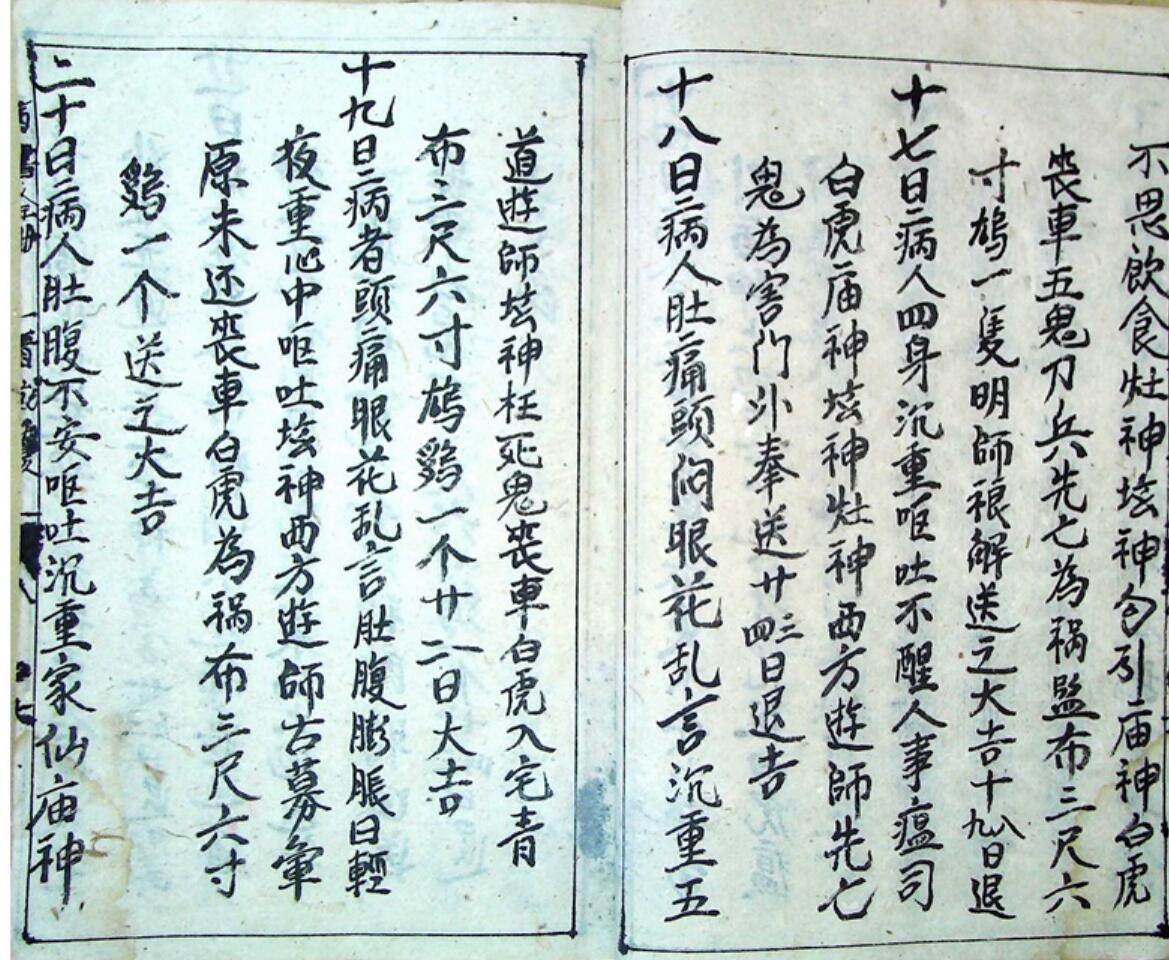 不思飲食灶神坛神勾引庙神白虎
丧車五鬼刀兵先亡為祸藍布三尺六
寸鳩一隻明師禳解送之大吉十八九日退
十七日病人四身沉重呕吐不醒人事瘟司
白虎庙神坛神灶神西方遊師先亡
鬼為害門外奉送廿三四日退吉
十八日病人肚痛頭闷眼花乱言沉重五
道遊師坛神枉死鬼丧車白虎入宅青
布三尺六寸鳩鷄一个廿二日大吉
十九日病者頭痛眼花乱言肚腹膨脹日輕
夜重心中呕吐坛神西方遊師古墓
原未还丧車白虎為祸布三尺六寸
鷄一个送之大吉
二十日病人肚腹不安呕吐沉重家仙庙神